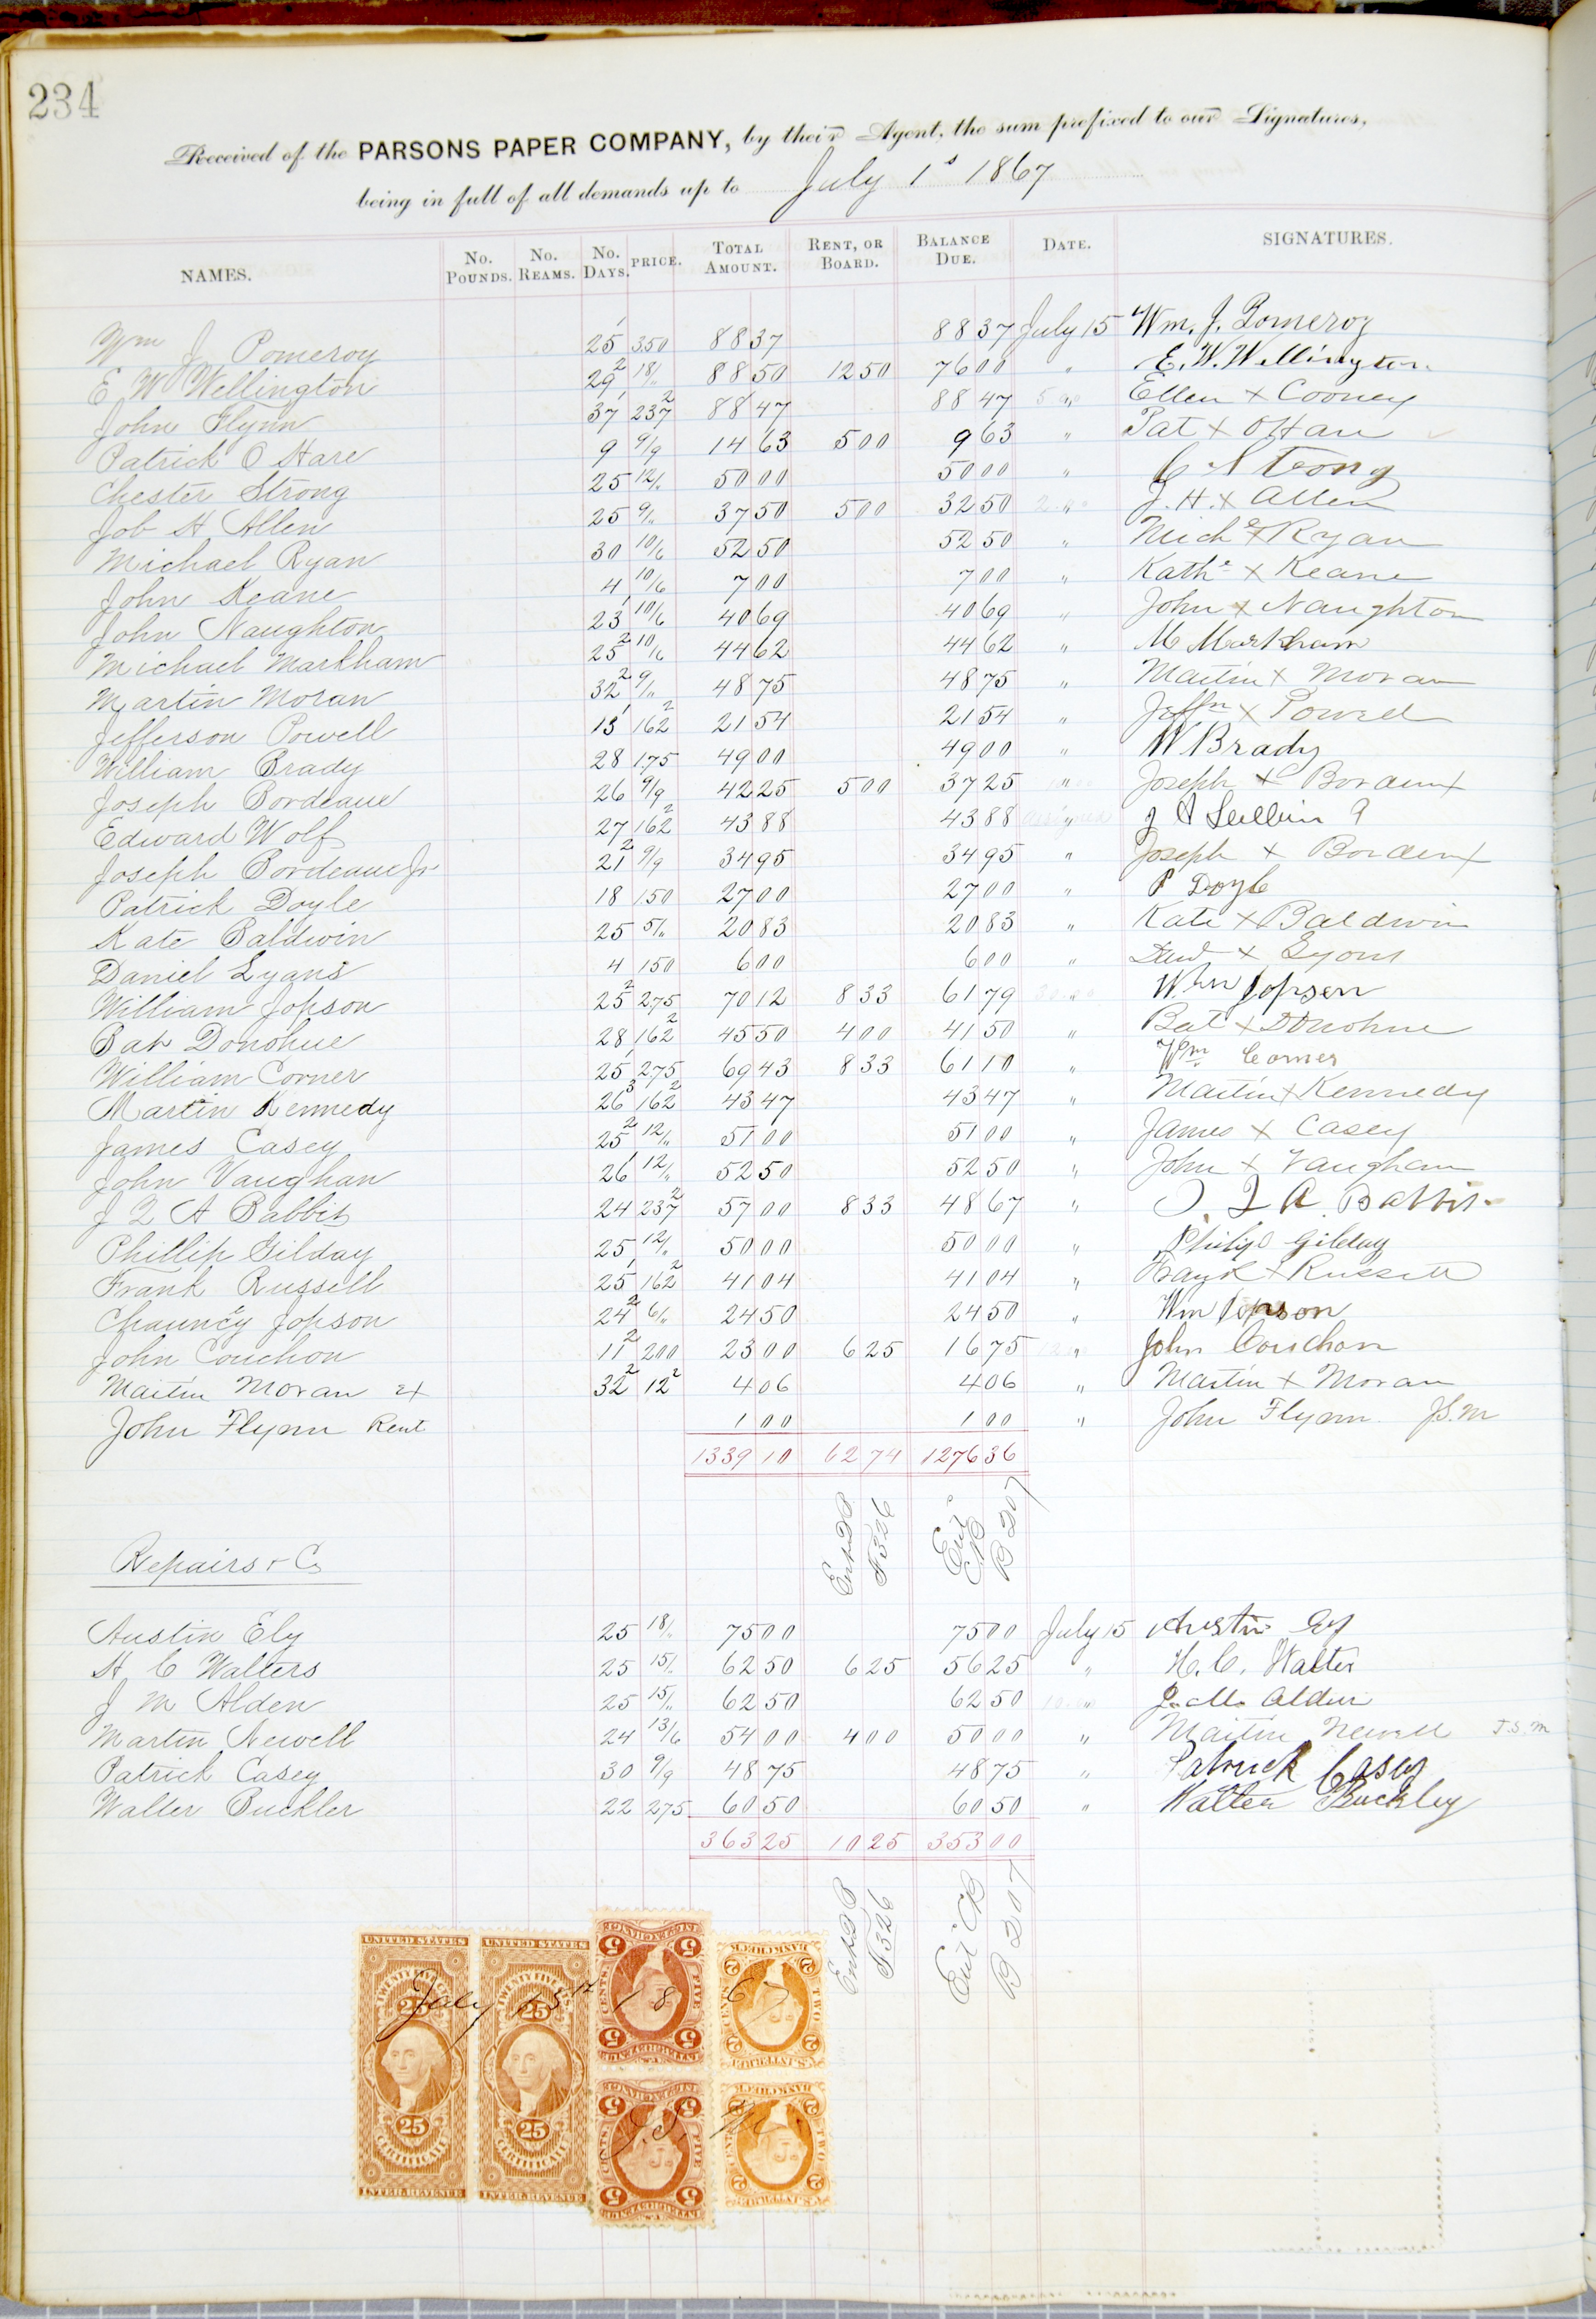 234
Received of the PARSONS PAPER COMPANY, by their Agent, the sum prefixed to our Signatures,
being in full of all demands up to July 1s 1867
NAMES. No. POUNDS. No. REAMS. No. DAYS. PRICE. TOTAL AMOUNT. RENT, OR BOARD. BALANCE DUE. DATE. SIGNATURES.
Wm J Pomeroy 25 1 350 88 37 88 37 July 15 Wm. J. Pomeroy
E W Wellington 29 2 18/" 88 50 12 50 76 00 " E. W. Wellington
John Flynn 37 1 237 2 88 47 88 47 " Ellen x Cooney
Patrick O Hare 9 9/9 14 63 5 00 9 63 " Pat x OHare
Chester Strong 25 12/" 50 00 50 00 " C Strong
Job H Allen 25 9/" 37 50 5 00 32 50 " J. H. x Allen
Michael Ryan 30 10/6 52 50 52 50 " Michl x Ryan
John Keane 4 10/6 7 00 7 00 " Kathe x Keane
John Naughton 23 1 10/6 40 69 40 69 " John x Naughton
Michael Markham 25 2 10/6 44 62 44 62 " M Markham
Martin Moran 32 2 9/" 48 75 48 75 " Martin x Moran
Jefferson Powell 13 1 162 2 21 54 21 54 " Jeffn x Powell
William Brady 28 1.75 49 00 49 00 " W Brady
Joseph Bordeaue 26 9/9 42 25 5 00 37 25 " Joseph x Bordeaux
Edward Wolf 27 162 2 43 88 43 88 "
Joseph Bordeaue Jr 21 2 9/9 34 95 34 95 " Joseph x Bordeux
Patrick Doyle 18 150 27 00 27 00 " P Doyle
Kate Baldwin 25 5/" 20 83 20 83 " Kate x Baldwin
Daniel Lyans 4 150 6 00 6 00 " Danl x Lyons
William Jopson 25 2 275 70 12 8 33 61 79 " Wm Jopson
Bat Donohue 28 162 2 45 50 4 00 41 50 " Bat x Donohue
William Corner 25 1 275 69 43 8 33 61 10 " Wm. Corner
Martin Kennedy 26 3 162 2 43 47 43 47 " Martin x Kennedy
James Casey 25 2 12/" 51 00 51 00 " James x Casey
John Vaughan 26 1 12/" 52 50 52 50 " John x Vaughan
J Q A Babbit 24 237 2 57 00 8 33 48 67 " J. Q A. Babbit
Phillip Gilday 25 12/" 50 00 50 00 " Philip Gilday
Frank Russell 25 1 162 2 41 04 41 04 " Frank x Russell
Chauncey Jopson 24 2 6/" 24 50 24 50 " Wm Jopson
John Couchon 11 2 200 23 00 6 25 16 75 " John Couchon
Martin Moran 32 2 12 2 4 06 4 06 " Martin x Moran
John Flynn Rent 1 00 1 00 " John Flynn J.S.M
1339 10 62 74 1276 36
F 326
B 207
Repairs & C
Austin Ely 25 18/" 75 00 75 00 July 15 Austin Ely
H C Walters 25 15/" 62 50 6 25 56 25 " H. C. Walter
J M Alden 25 15/" 62 50 62 50 " J. M. Alden
Martin Newell 24 13/6 54 00 4 00 50 00 " Martin Newell J.S.M
Patrick Casey 30 9/9 48 75 48 75 " Patrick Casey
Walter Buckler 22 275 60 50 60 50 " Walter Buckley
363 25 10 25 353 00
F 326
Ent CB
B 207
UNITED STATES UNITED STATES
TWENTY FIVE TWENTY FIVE
25 25
July 13th 1867
J. S. M.
25 25
CERTIFICATE CERTIFICATE
INTER. REVENUE INTER. REVENUE
U.S. INTER. REV. FIVE CENTS 5 5 5 5
U.S. INTER. REV. FIVE CENTS 5 5 5 5
BANK CHECK U.S. INTER. REV. TWO CENTS 2 2 2 2
BANK CHECK U.S. INTER. REV. TWO CENTS 2 2 2 2